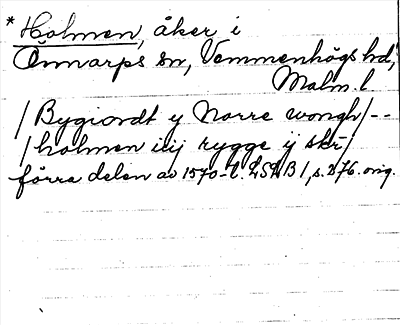 * Holmen, åker i
Önnarps sn, Vemmenhögs hd,
Malm. l
/ Bygiordt y Norre wongh / - -
/ holmen iiij rygge ij skr /
förra delen av 1570-t. LSLB 1, s. 276. orig.